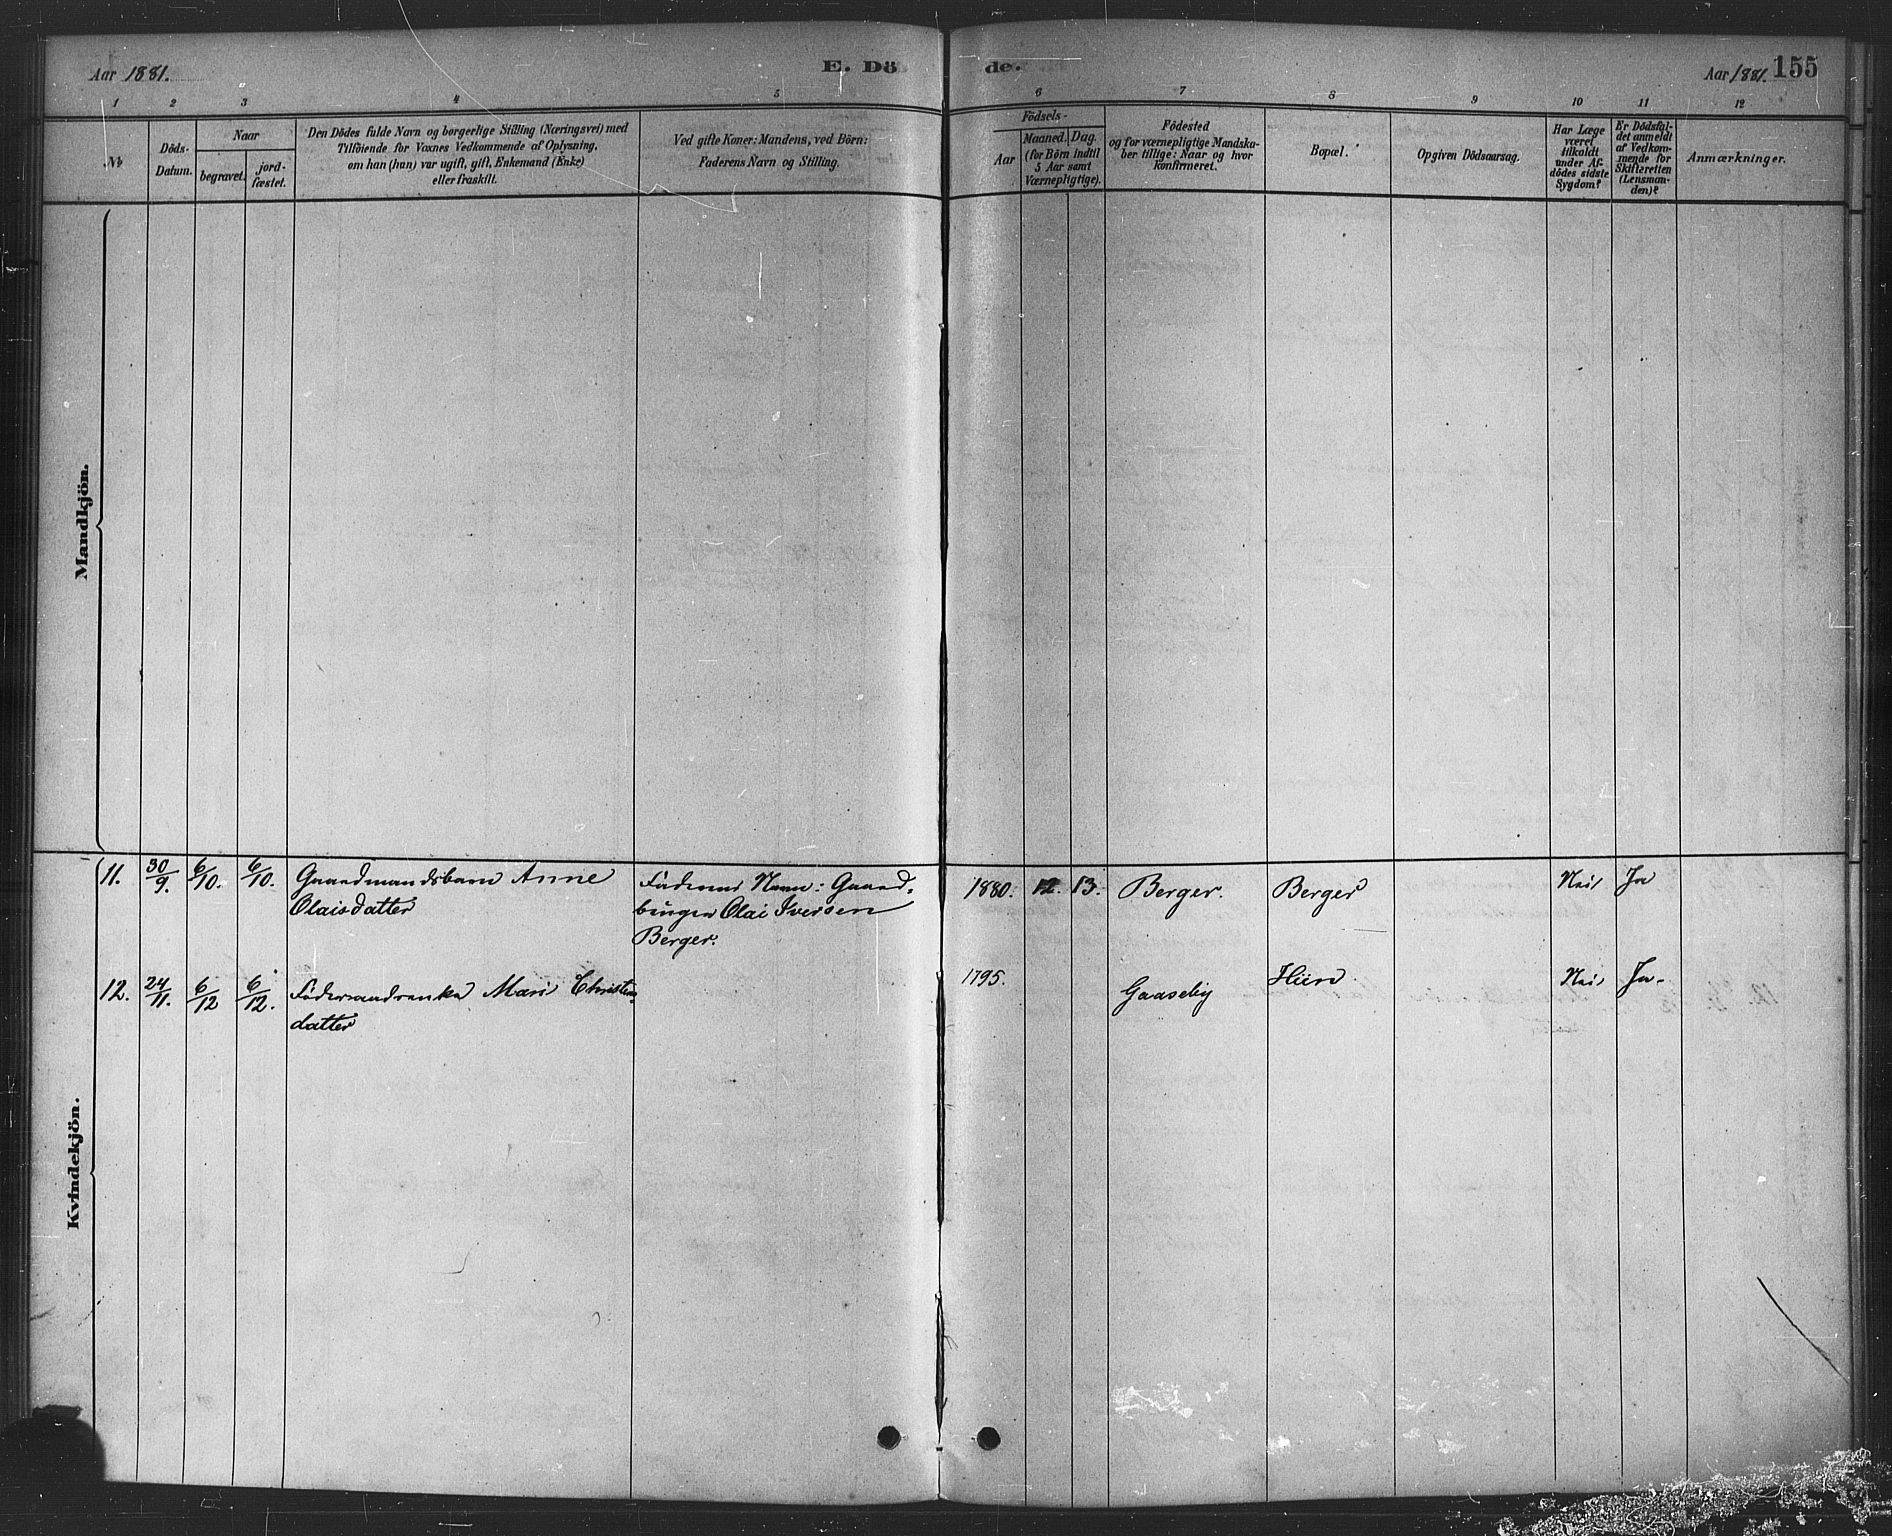 Aar 1881.
E. Dö
de.
Aar 1881.
155
1 2 3 4 5 6 7 8 9 10 11 12
No
Döds-
Datum.
Naar
begravet.
jord-
fæstet.
Den Dödes fulde Navn og borgerlige Stilling (Næringsvei) med
Tilföiende for Voxnes Vedkommende af Oplysning,
om han (hun) var ugift, gift, Enkemand (Enke)
eller fraskilt.
Ved gifte Koner: Mandens, ved Börn:
Faderens Navn og Stilling.
Födsels-
Aar
Maaned.
Dag.
(for Börn indtil
5 Aar samt
Værnepligtige).
Födested
og for værnepligtige Mandska-
ber tillige: Naar og hvor
konfirmeret.
Bopæl.
Opgiven Dödsaarsag.
Har Læge
været
tilkaldt
under Af-
dödes sidste
Sygdom?
Er Dödsfal-
det anmeldt
af Vedkom-
mende for
Skifteretten
(Lensman-
den)?
Anmærkninger.
Mandkjön.
Kvindekjön.
11. 30/9. 6/10. 6/10. Gaardmandsbarn Anne
Olaisdatter
Faderens Navn: Gaard-
bruger Olai Iversen
Berger.
1880. 12. 13. Berger. Berger Nei Ja
12. 24/11. 6/12 6/12. Föderaadsenke Mari Christens
datter
1795. Gaaseby Hiin Nei Ja.